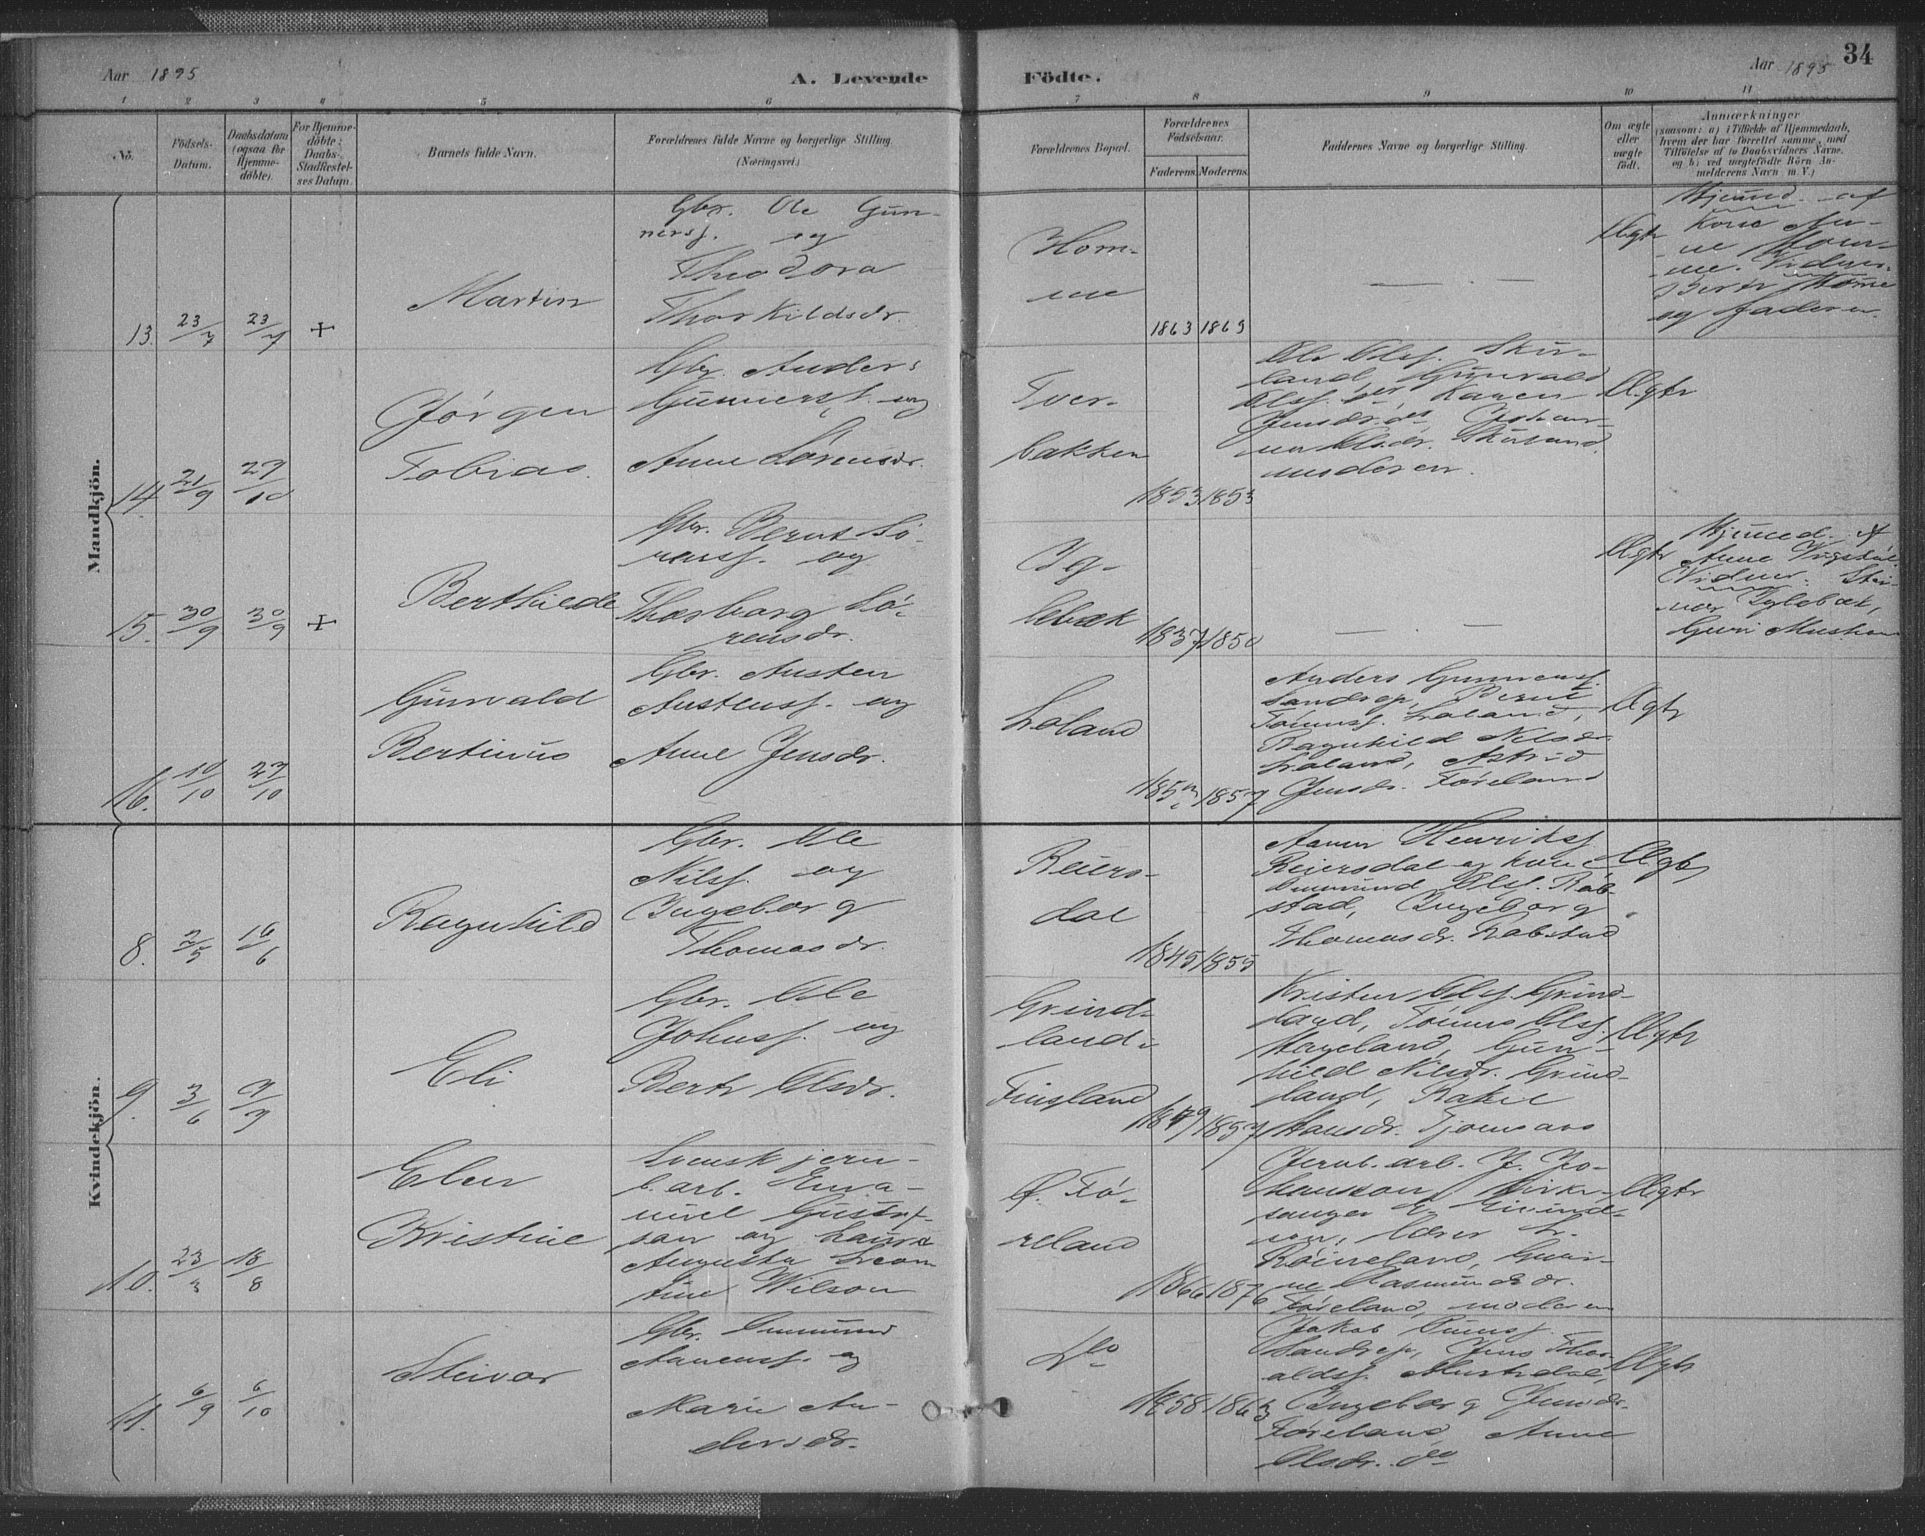 Aar 1895
A. Levende
Födte.
Aar 1895
34
1 2 3 4 5 6 7 8 9 10 11
No.
Födsels-
Datum.
Daabsdatum
(ogsaa for
Hjemme-
döbte).
For Hjemme-
döbte:
Daabs-
Stadfæstel-
ses Datum.
Barnets fulde Navn.
Forældrenes fulde Navne og borgerlige Stilling
(Næringsvei.)
Forældrenes Bopæl.
Forældrenes
Födselsaar.
Faderens. Moderens.
Faddernes Navne og borgerlige Stilling.
Om ægte
eller
uægte
födt.
Anmærkninger
(saasom: a) i Tilfælde af Hjemmedaab,
hvem der har forrettet samme, med
Tilföielse af to Daabsvidners Navne.
og b) ved uægtefödte Börn An-
melderens Navn m. V.)
Mandkjön.
13. 23/7 23/7 +
Martin
Gbr. Ole Gun-
nersf. og
Theodora
Thorkildsdr.
Hom-
me
1863 1869
— —
Ægte
Hjemmed. af
Kone An-
ne Hom-
me. Vidner:
Berte Homme
og faderen.
14. 21/9 27/10
Jørgen
Tobias.
Gbr. Anders
Gunnersf. og
Anne Sørensdr.
Tver-
bakken
1853 1853
Ole Olsf. Sku-
land, Gunvald
Olsf. do, Karen
Jensdr. do,
Olsdr. Skuland,
moderen.
Ægte
15. 30/9 30/9 +
Berthilde
Gbr. Bernt Sø-
rensf. og
Thorborg Sø-
rensdr.
Ig-
lebæk
1837 1850
— —
Ægte
Hjemmed. af
Anne
Vidner: Stei-
nar Iglebæk,
Guri
16. 10/10 27/10
Gunvald
Bertinus
Gbr. Austen
Austensf. og
Anne Jensdr.
Loland
1857
Anders Gunnersf.
Sandrep, Bernt
Tønnesf. Loland,
Ragnhild Nilsdr.
Loland, Astrid
Jensdr. Føreland
Ægte
Kvindekjön.
8. 2/5 16/6
Ragnhild
Gbr. Ole
Nilsf. og
Ingeborg
Thomasdr.
Reiers-
dal
1845 1855
Aanen Henriksf.
Reiersdal og kone
Ommund Olsf. Rob-
stad, Ingeborg
Thomasdr. Robstad
Ægte
9. 3/6 9/9
Eli
Gbr. Ole
Johnsf. og
Berte Olsdr.
Grind-
land
Finsland
1849 1857
Kristen Olsf. Grind-
land, Tønnes Olsf.
Hageland, Gun-
hild Nilsdr. Grind-
land, Rakel
Hansdr. Tjomsaas
Ægte
10. 23/3 18/8
Elen
Kristine
Svensk jern-
b. arb. Ema-
nuel Gustaf-
son og Laura
Augusta Leon-
tine Wilson
Ø. Fø-
reland
1866 1876
Jernb. arb. J. Jo-
hanson, Kirke-
sanger E. Eivind-
son, Lærer L.
Røineland, Gun-
ne Aasmundsdr.
Føreland, moderen
Ægte
11. 6/9 6/10
Steinar
Gbr. Ommund
Aanensf. og
Marie An-
dersdr.
do
1858 1863
Jakob
Sandrep, Jens Thor-
aldsf.
Ingeborg Jensdr.
Føreland, Anne
Olsdr. do
Ægte